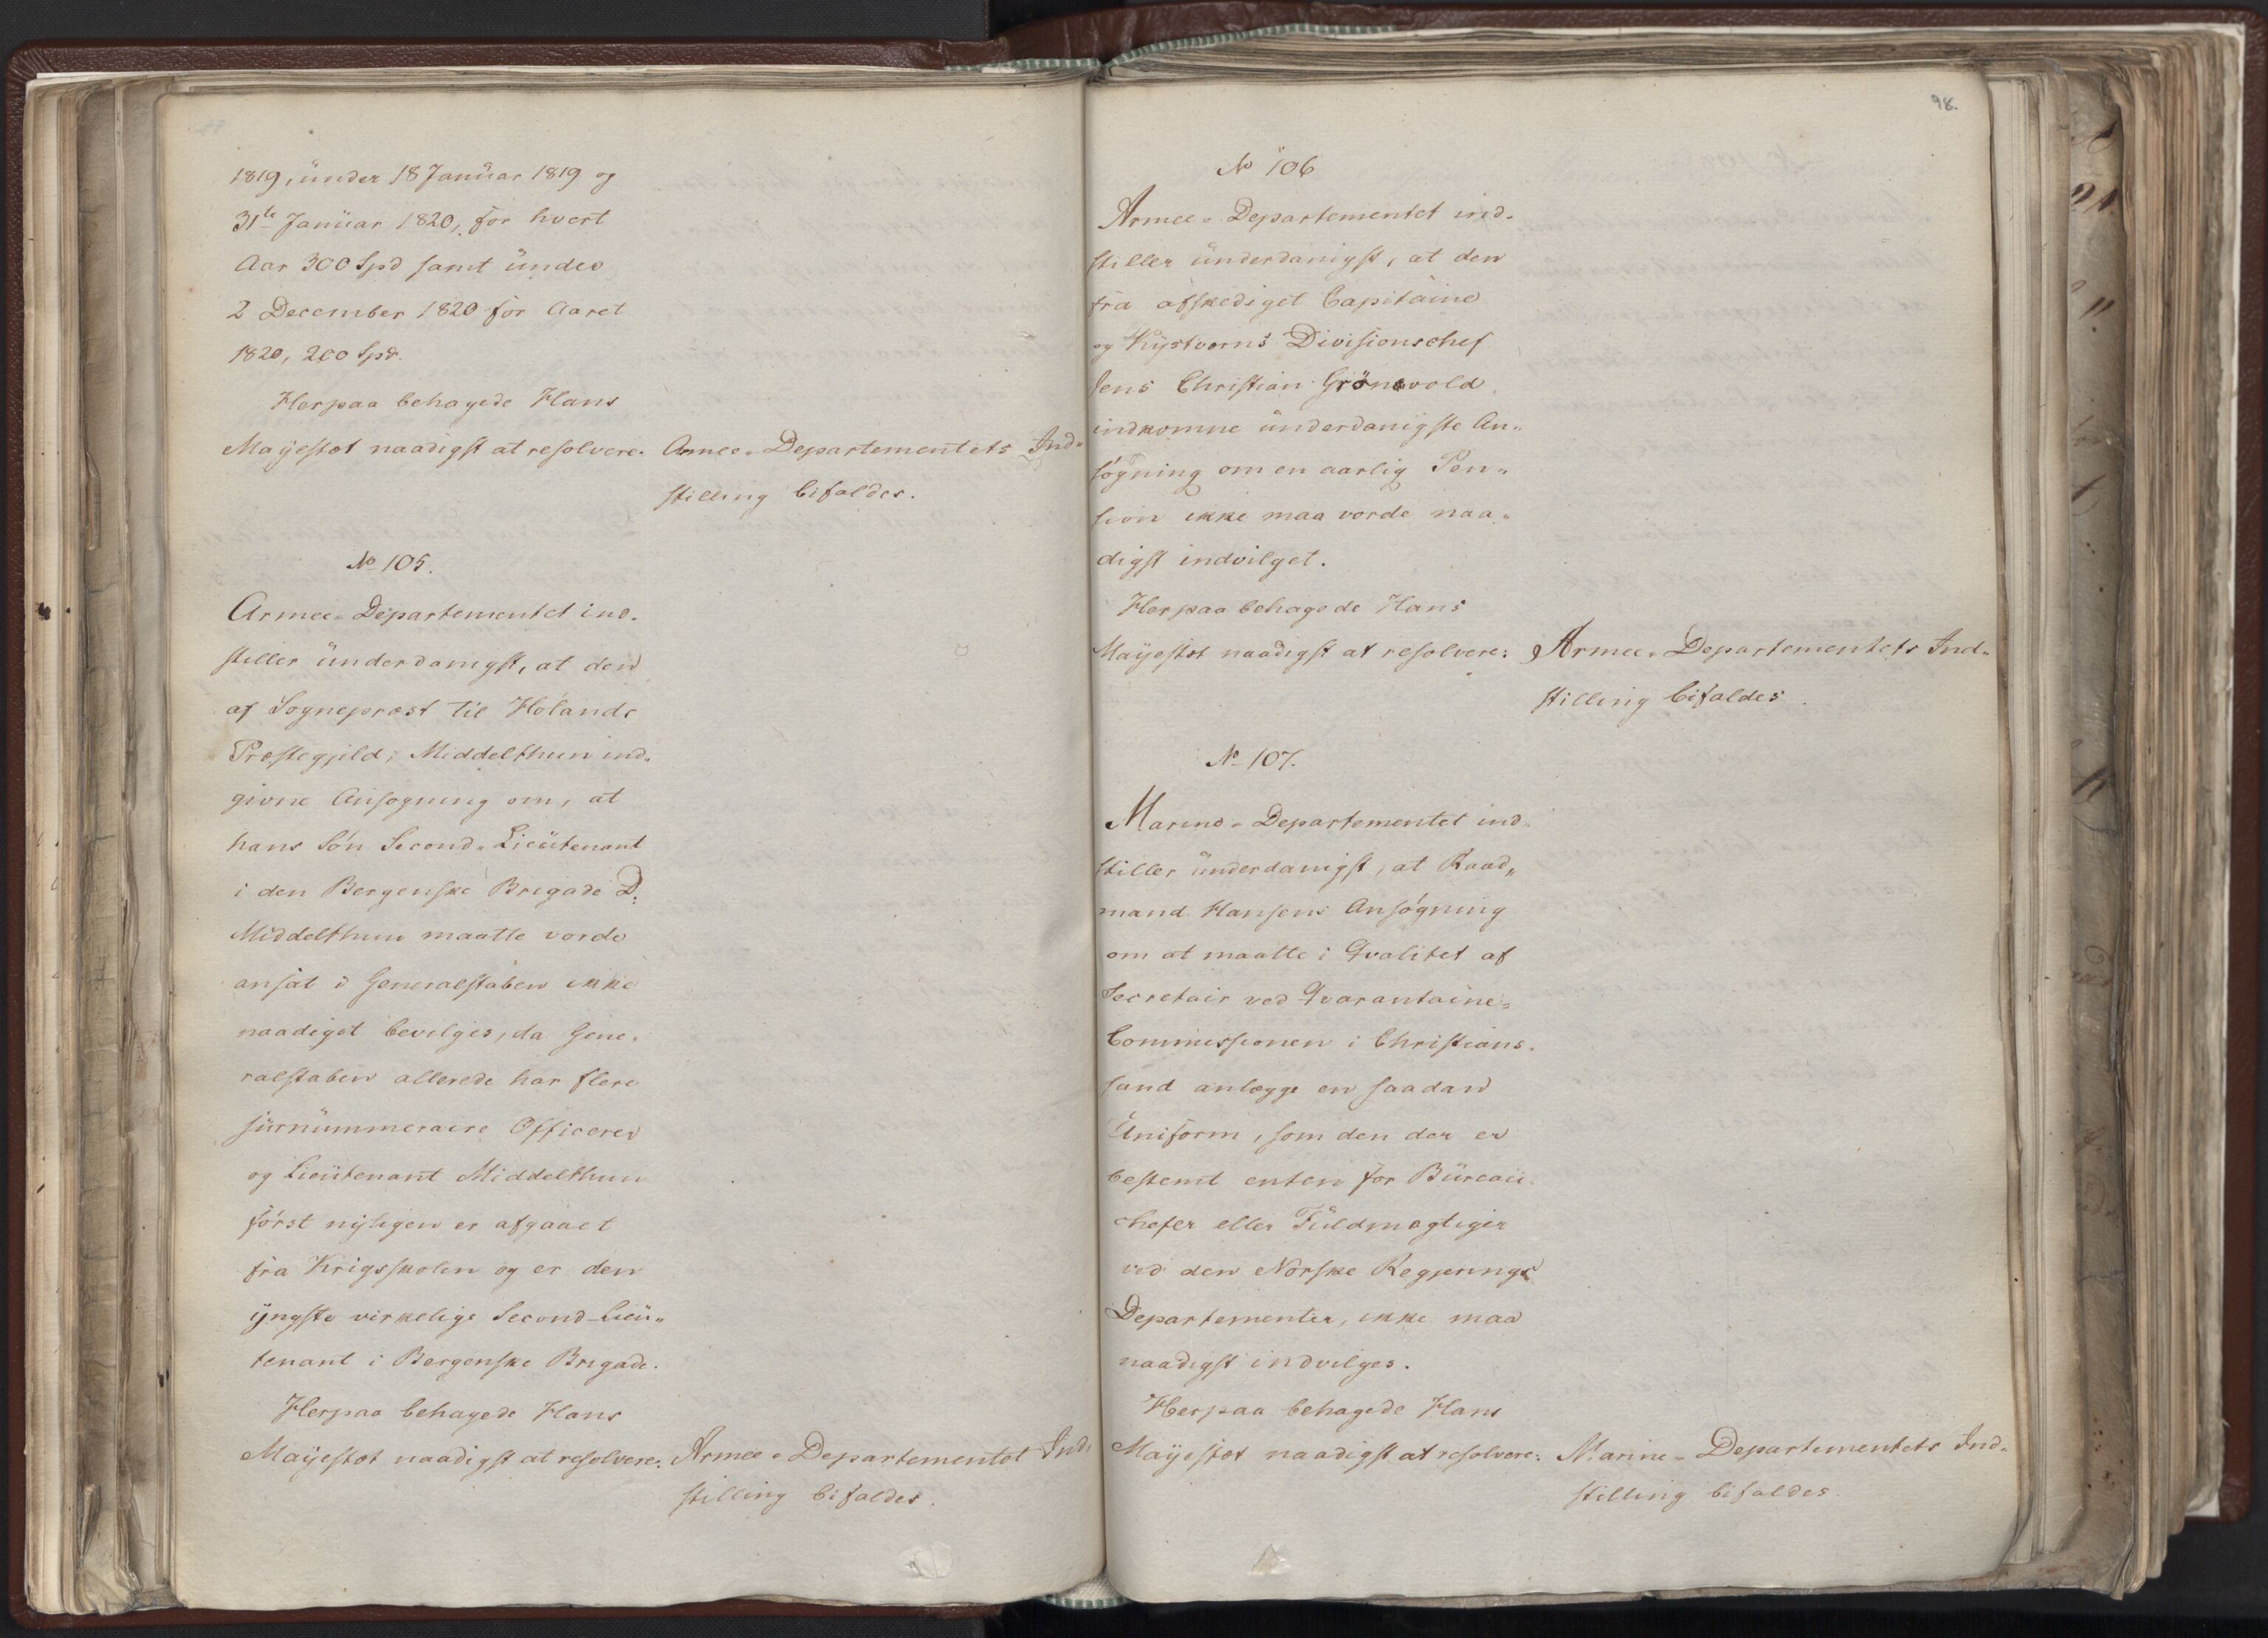 1819, ünder 18 Janüar 1819 og
31te Janüar 1820, for hvert
Aar 300 Spd samt ünder
2 December 1820 for Aaret
1820, 200 Spd.
Herpaa behagede Hans
Mayestæt naadigst at resolvere. Armee-Departementets Ind-
stilling bifaldes.
No 105.
Armee-Departementet ind-
stiller ünderdanigst, at den
af Sognepræst til Hølands
Præstegjeld, Middelthun ind-
givne Ansøgning om, at
hans Søn Second-Lieütenant
i den Bergenske Brigade D:
Middelthun maatte vorde
ansat i Generalstaben ikke
naadigst bevilges, da Gene-
ralstaben allerede har flere
sürnümmeraire Officerer
og Lieütenant Middelthun
først nÿligen er afgaaet
fra Krigsskolen og er den
ÿngste virkelige Second-Lieü-
tenant i Bergenske Brigade.
Herpaa behagede Hans
Mayestæt naadigst at resolvere: Armee-Departementet Ind-
stilling bifaldes.
98.
No 106
Armee-Departementet ind-
stiller ünderdanigst, at den
fra afskediget Capitaine
og Kÿstværns Divisionschef
Jens Christian Grönvold
indkomne ünderdanigste An-
søgning om en aarlig Pen-
sion ikke maa vorde naa-
digst indvilget.
Herpaa behagede Hans
Mayestæt naadigst at resolvere: Armee-Departementets Ind-
stilling bifaldes.
No 107.
Marine-Departementet ind-
stiller ünderdanigst, at Raad-
mand Hansens Ansøgning
om at maatte i Qvalitet af
Secretair ved Qvarantaine-
Commissionen i Christians-
sand anlægge en saadan
Uniform, som den der er
bestemt enten for Büreaü-
chefer eller Füldmægtiger
ved den Norske Regjerings
Departementer, ikke maa
naadigst indvilges.
Herpaa behagede Hans
Mayestæt naadigst at resolvere: Marine-Departementets Ind-
stilling bifaldes.